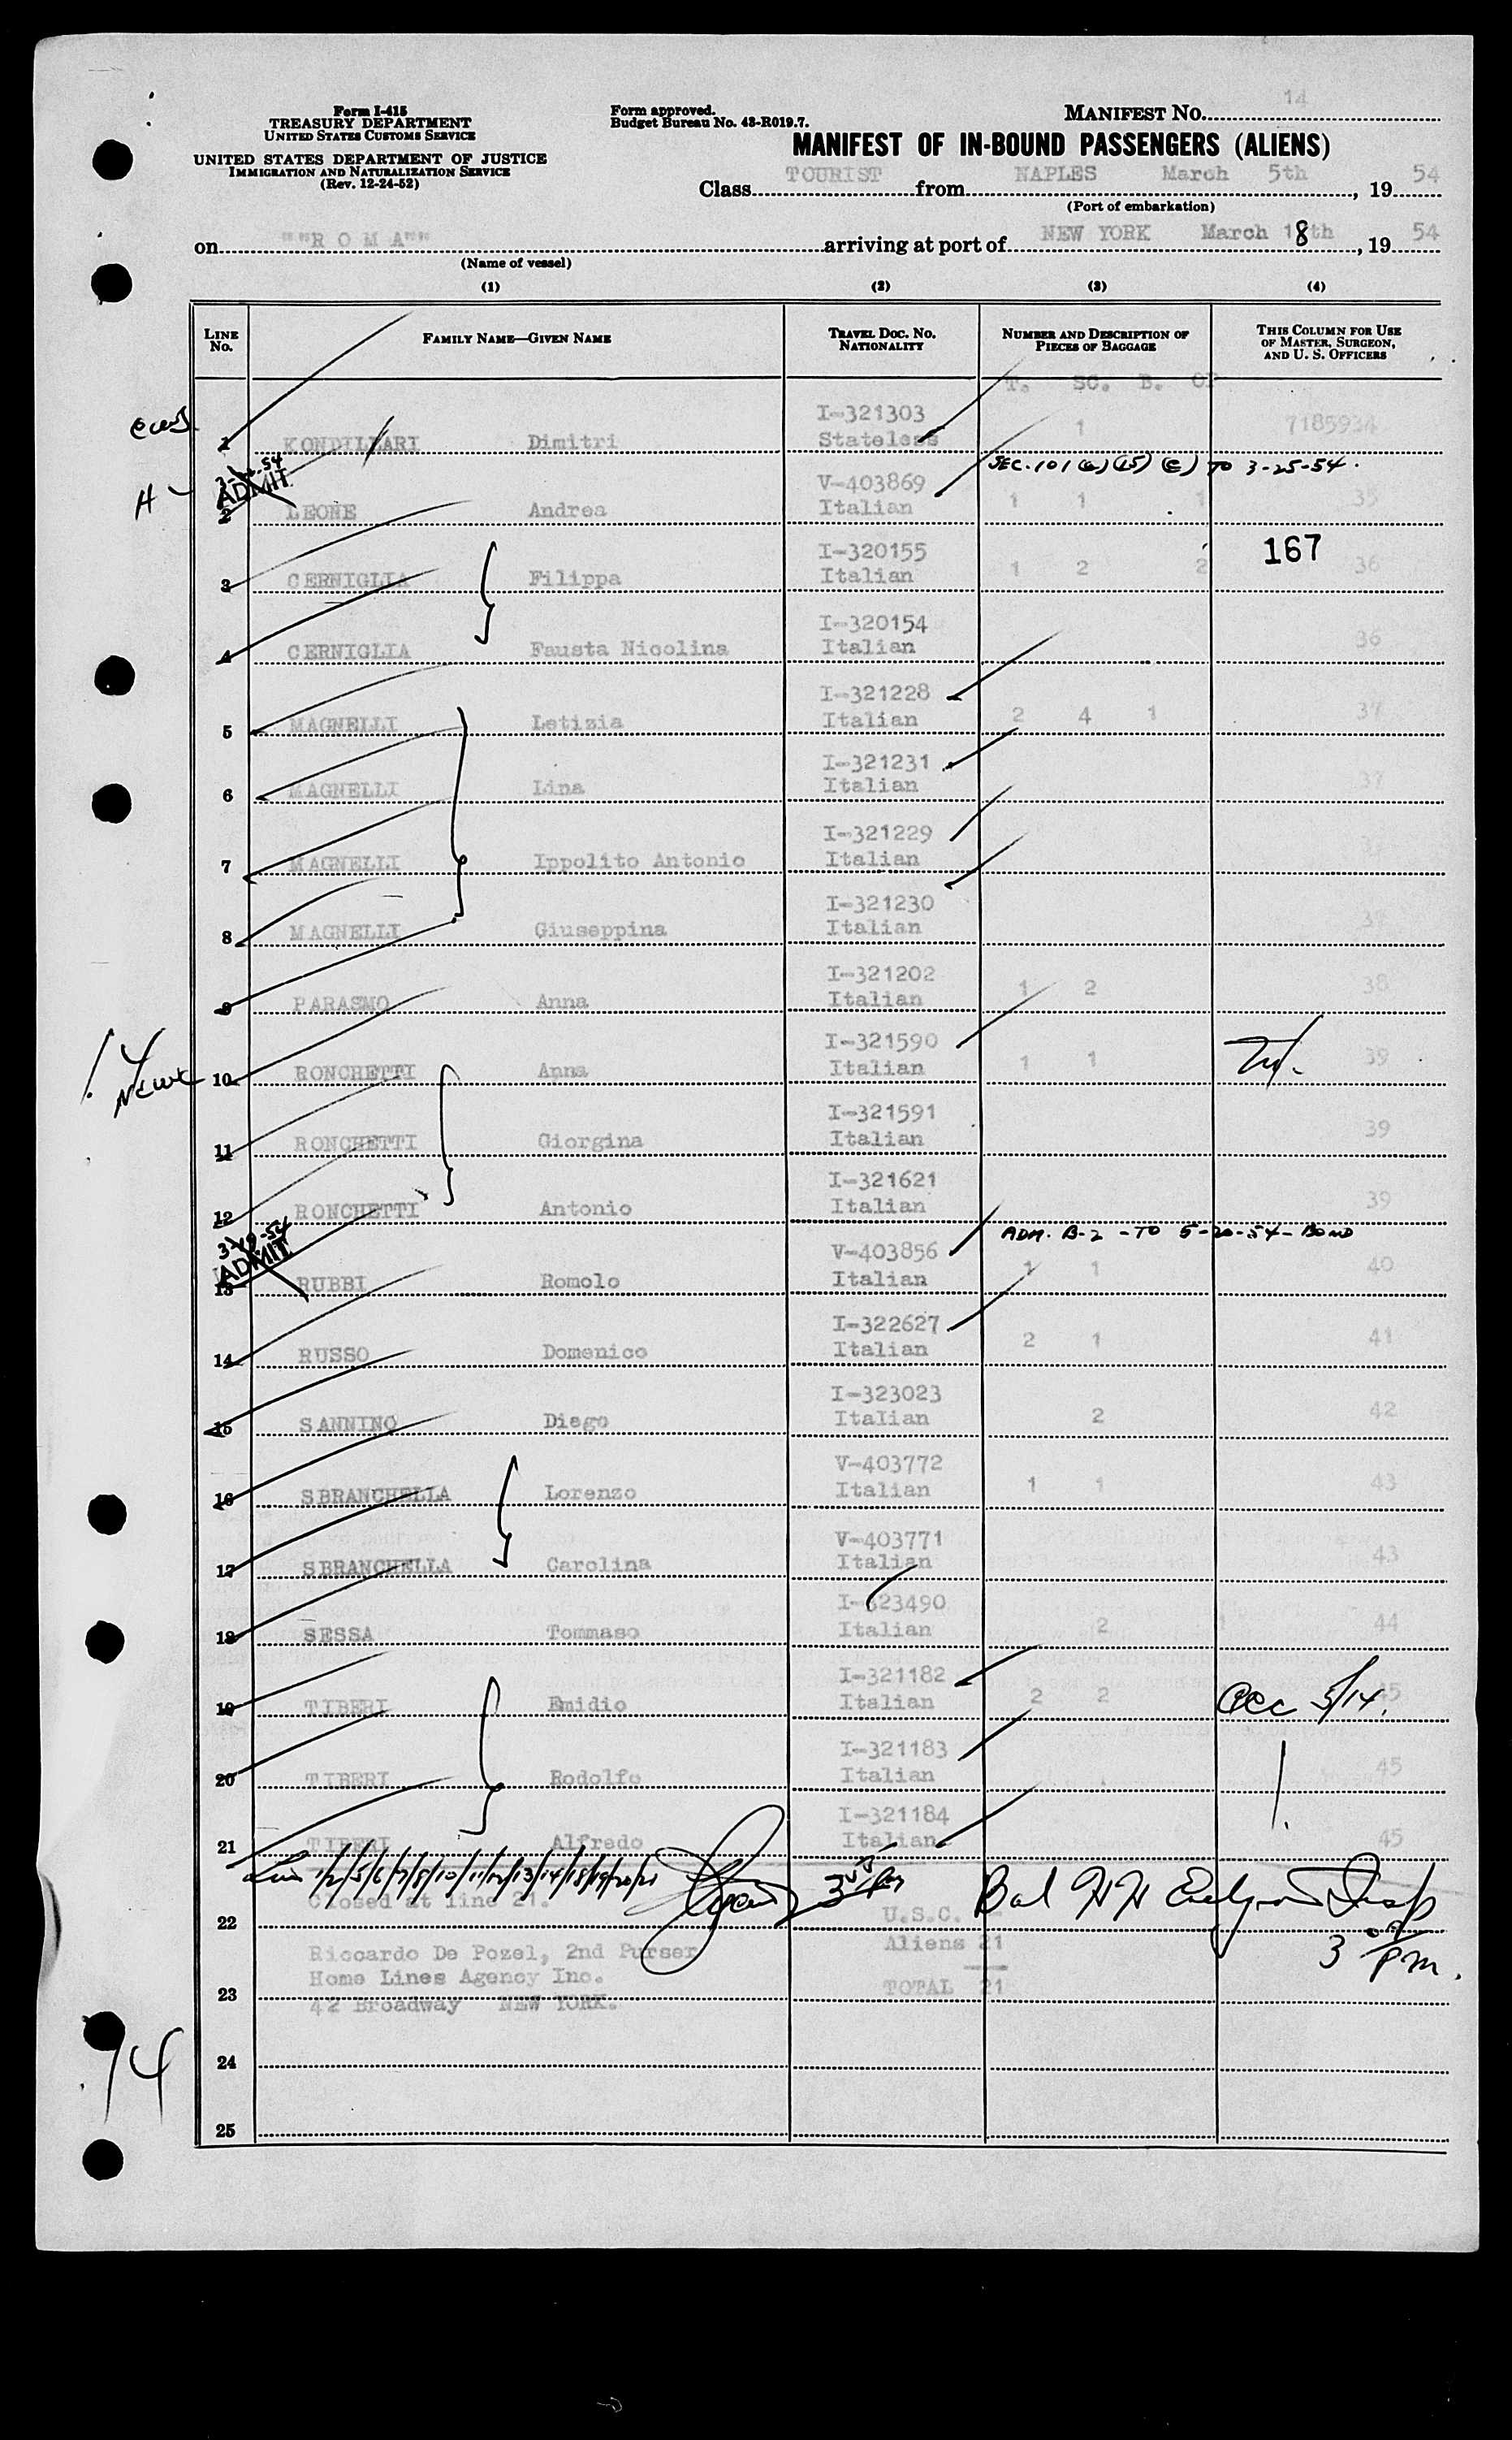 Form I-415
TREASURY DEPARTMENT
UNITED STATES CUSTOMS SERVICE
UNITED STATES DEPARTMENT OF JUSTICE
IMMIGRATION AND NATURALIZATION SERVICE
(Rev. 12-24-52)
Form approved.
Budget Bureau No. 43-R019.7.
MANIFEST NO. 14
MANIFEST OF IN-BOUND PASSENGERS (ALIENS)
Class TOURIST from NAPLES March 5th, 19 54
(Port of embarkation)
on ""R O M A"" arriving at port of NEW YORK March 18th, 19 54
(Name of vessel)
(1) (2) (3) (4)
LINE NO. FAMILY NAME—GIVEN NAME TRAVEL DOC. NO. NATIONALITY NUMBER AND DESCRIPTION OF PIECES OF BAGGAGE THIS COLUMN FOR USE OF MASTER, SURGEON, AND U. S. OFFICERS
T. SC. B. OP
1 KONDILLARI Dimitri I-321303 Stateless 1 7185934
SEC. 101 (a) (15) (C) TO 3-25-54.
ADMIT
H
2 LEONE Andrea V-403869 Italian 1 1 1 35
3 CERNIGLIA Filippa I-320155 Italian 1 2 2 167 36
4 CERNIGLIA Fausta Nicolina I-320154 Italian 36
5 MAGNELLI Letizia I-321228 Italian 2 4 1 37
6 MAGNELLI Lina I-321231 Italian 37
7 MAGNELLI Ippolito Antonio I-321229 Italian
8 MAGNELLI Giuseppina I-321230 Italian 37
9 PARASMO Anna I-321202 Italian 1 2 38
10 RONCHETTI Anna I-321590 Italian 1 1 39
11 RONCHETTI Giorgina I-321591 Italian 39
12 RONCHETTI Antonio I-321621 Italian 39
ADM. B-2 - TO 5-20-54 - BOND
3-19-54
ADMIT
13 RUBBI Romolo V-403856 Italian 1 1 40
14 RUSSO Domenico I-322627 Italian 2 1 41
15 SANNINO Diego I-323023 Italian 2 42
16 SBRANCHELLA Lorenzo V-403772 Italian 1 1 43
17 SBRANCHELLA Carolina V-403771 Italian 43
18 SESSA Tommaso I-323490 Italian 2 1 44
19 TIBERI Emidio I-321182 Italian 2 2 5/14. 45
20 TIBERI Rodolfo I-321183 Italian 45
21 TIBERI Alfredo I-321184 Italian 45
1/2/5/6/7/8/10/11/12/13/14/18/19/20/21
Closed at line 21.
22 U.S.C.
Riccardo De Pozel, 2nd Purser Aliens 21
3 pm.
Home Lines Agency Inc.
23 42 Broadway NEW YORK. TOTAL 21
24
14
25